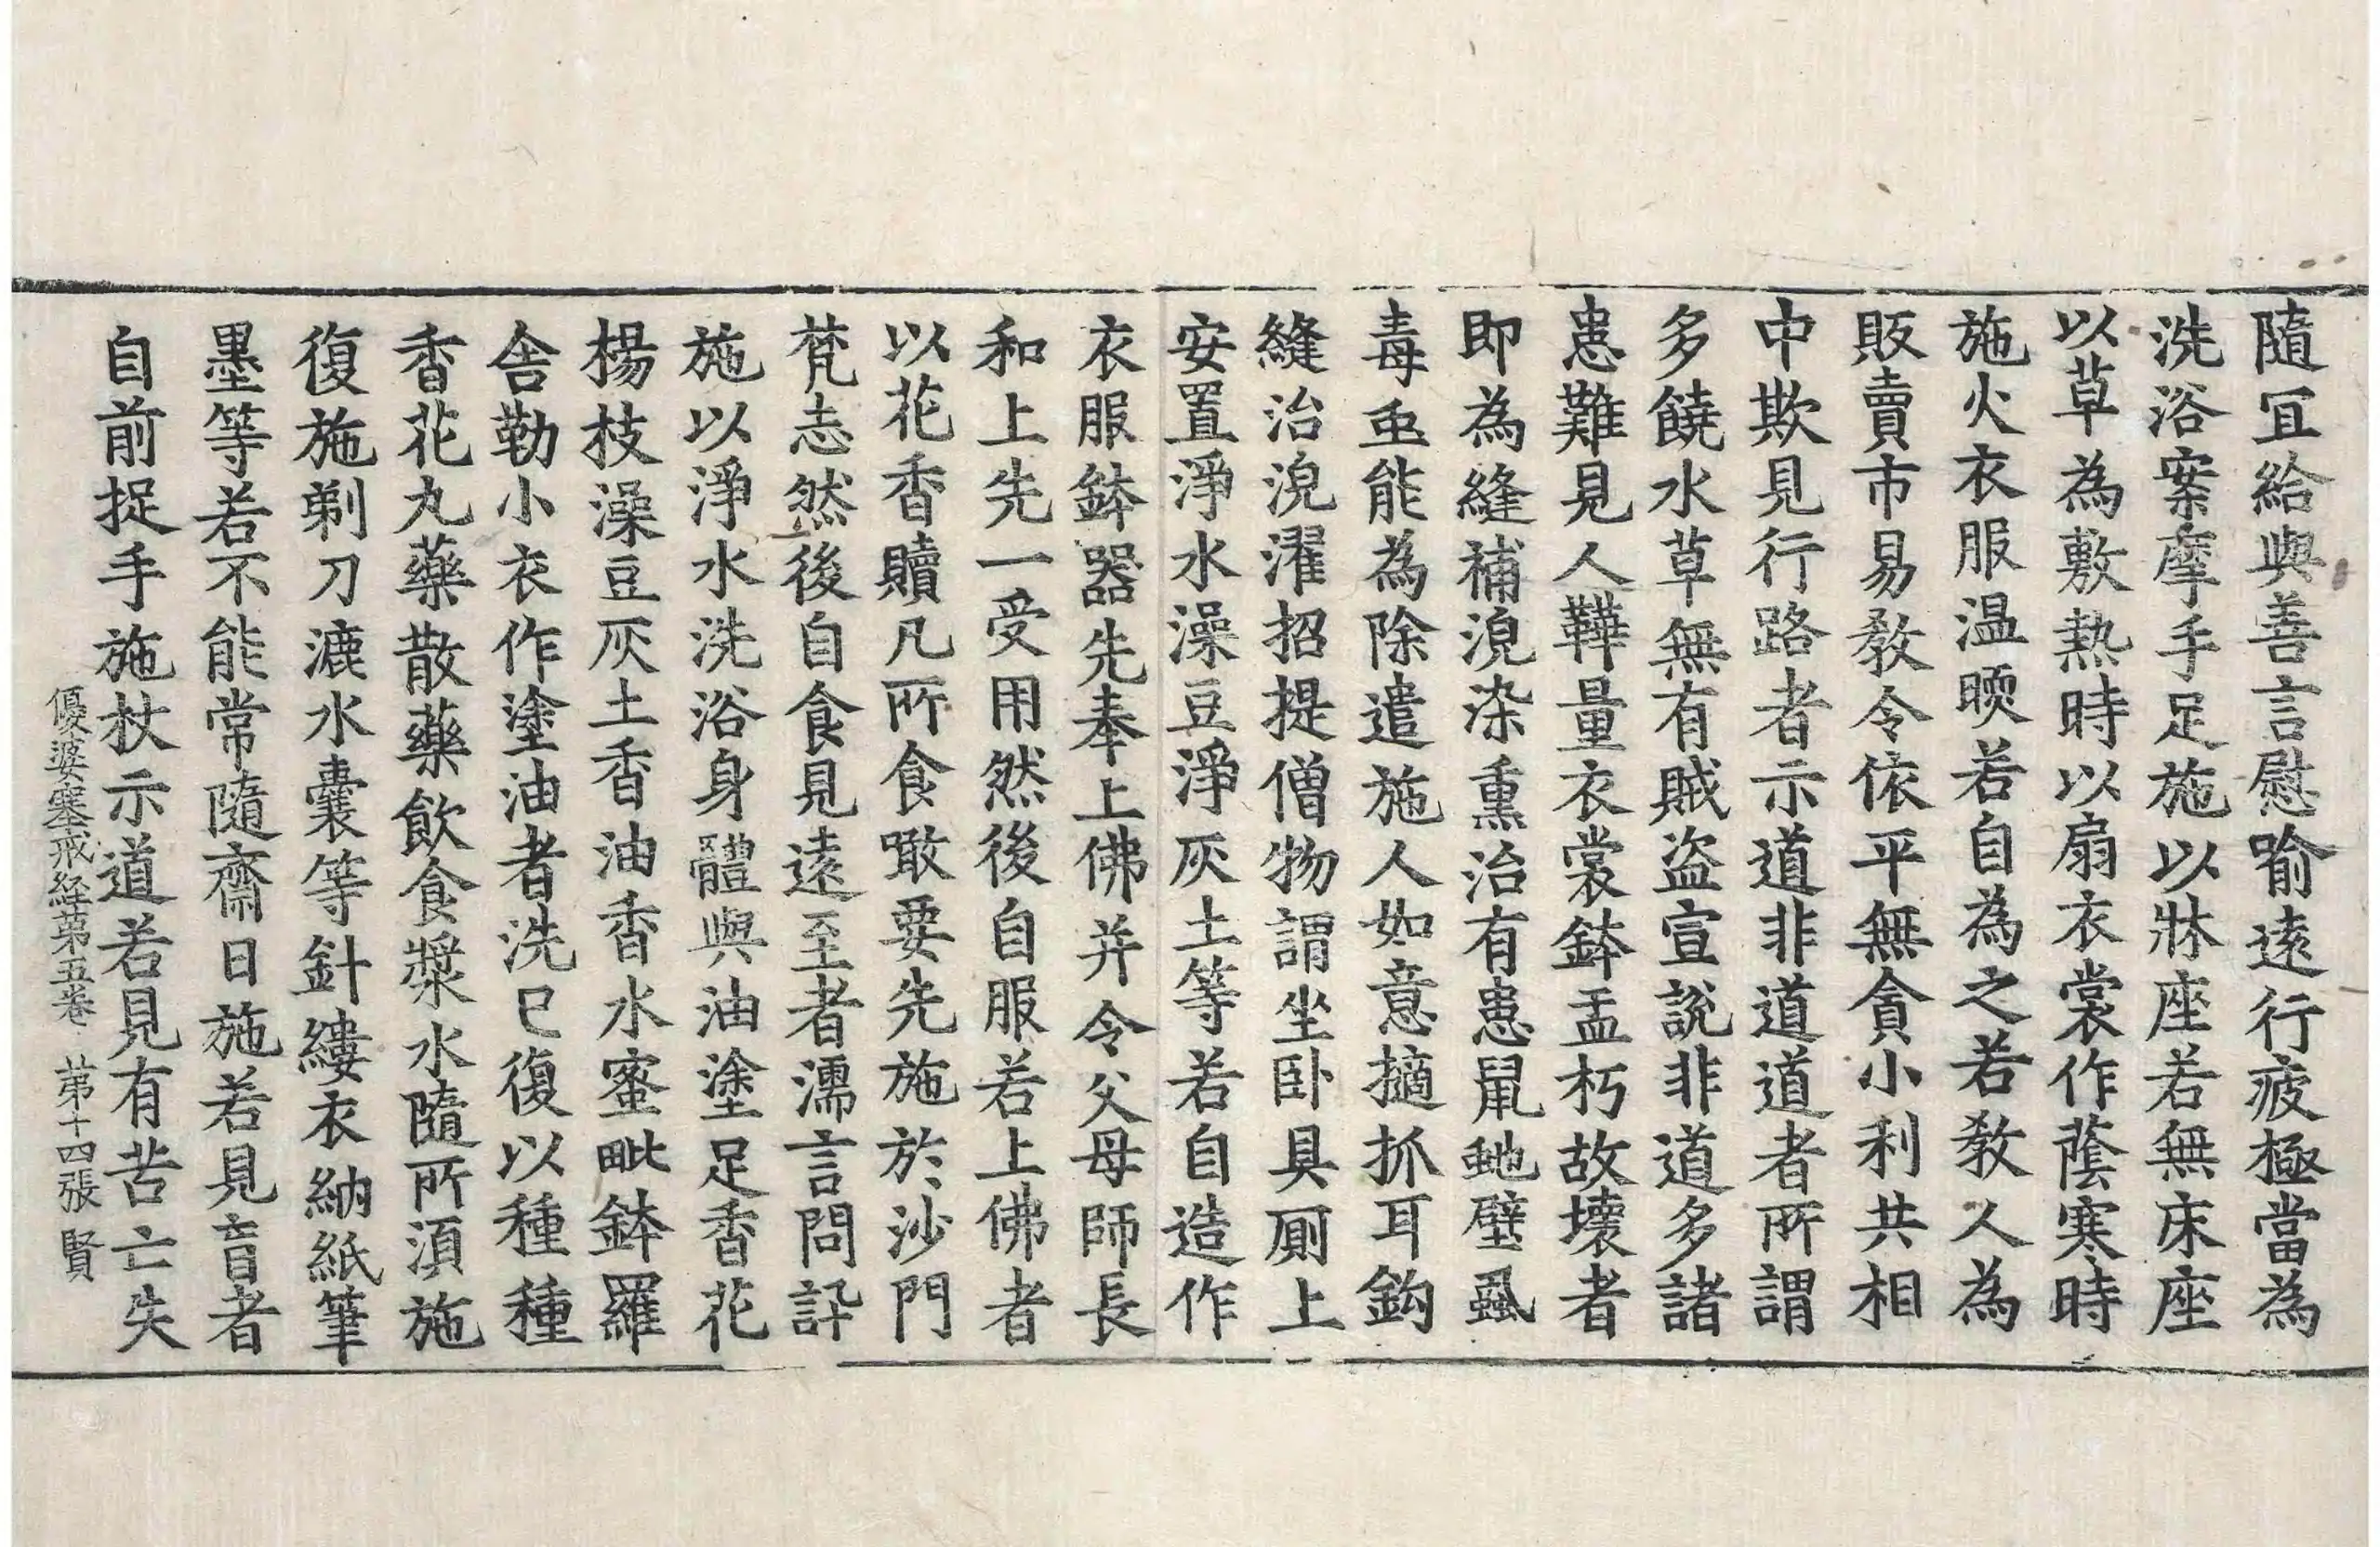 隨冝給與善言慰喻遠行疲極當為
洗浴案摩手足施以牀座若無床座
以草為敷熱時以扇衣裳作蔭寒時
施火衣服温暖若自為之若教人為
販賣市易教令依平無貪小利共相
中欺見行路者示道非道道者所謂
多饒水草無有賊盗宣説非道多諸
患難見人鞾量衣裳鉢盂朽故壞者
即為縫補浣染熏治有患鼠虵壁蝨
毒䖝能為除遣施人如意擿抓耳鈎
縫治浣濯招提僧物謂坐卧具厠上
安置淨水澡豆淨灰土等若自造作
衣服鉢器先奉上佛并令父母師長
和上先一受用然後自服若上佛者
以花香贖凡所食噉要先施於沙門
梵志然後自食見遠至者濡言問訊
施以淨水洗浴身體與油塗足香花
楊枝澡豆灰土香油香水蜜毗鉢羅
舎勒小衣作塗油者洗已復以種種
香花丸藥散藥飲食漿水隨所湏施
復施剃刀漉水囊等針縷衣納紙筆
墨等若不能常隨齋日施若見盲者
自前捉手施杖示道若見有苦亡失
優婆塞戒経苐五卷 苐十四張 賢